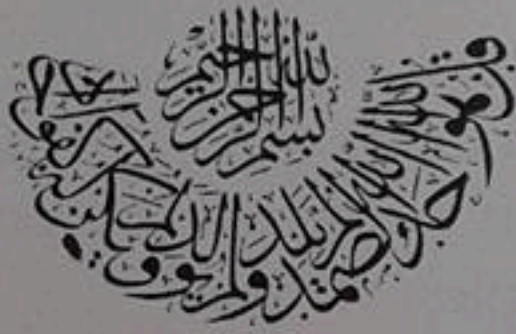 بسم الله الرحمن الرحيم
قل هو الله احد الله الصمد لم يلد ولم يولد ولم يكن له كفوا احد